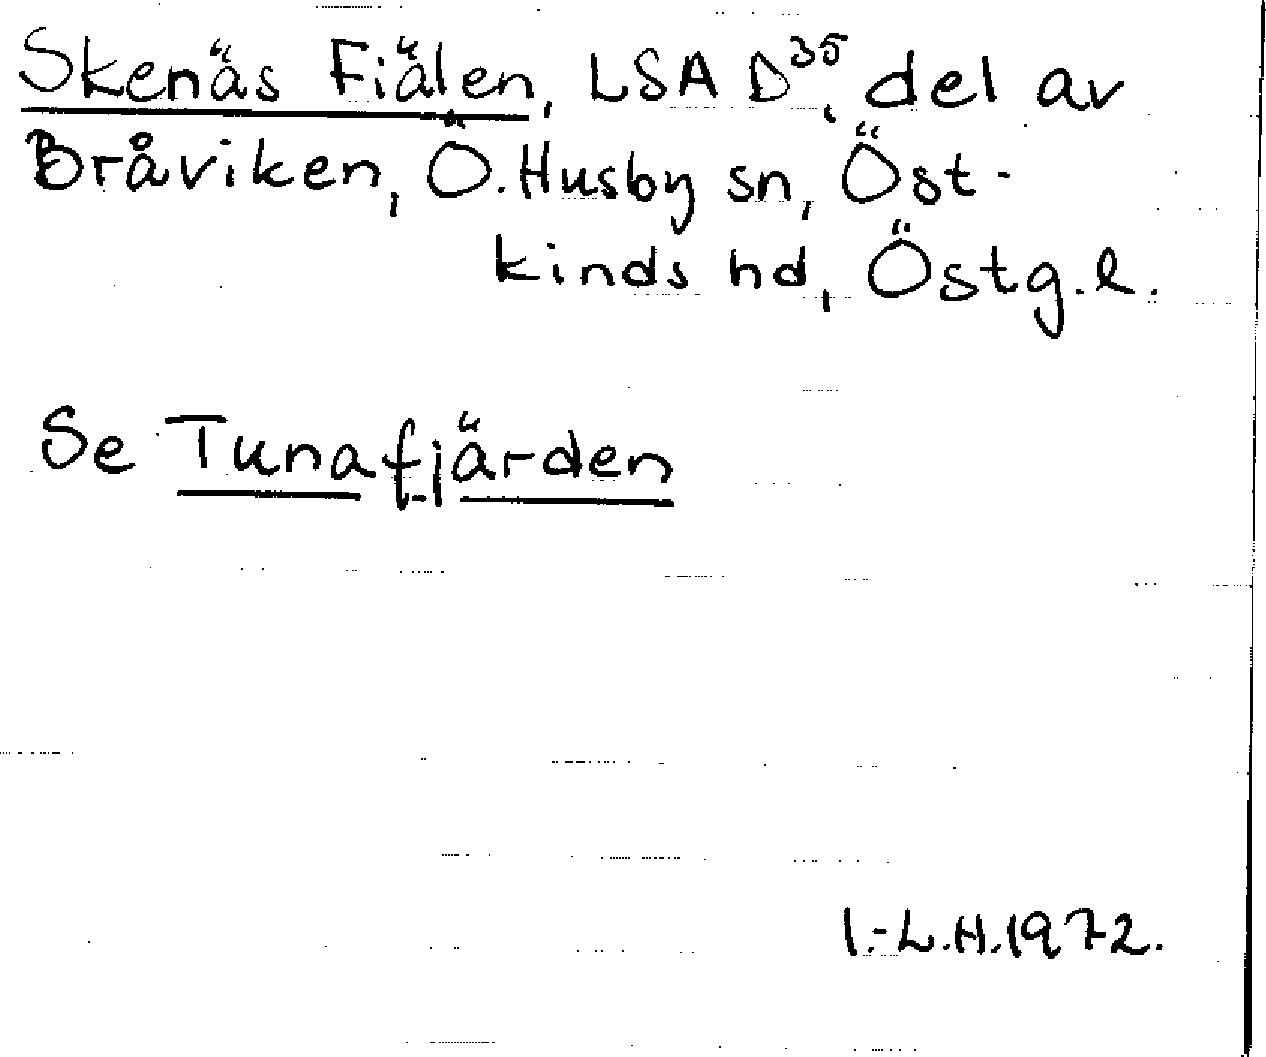 Skenäs Fiälen, LSA D³⁵, del av
Bråviken, Ö. Husby sn, Öst-
kinds hd, Östg.l.
Se Tunafjärden
I.-L.H. 1972.